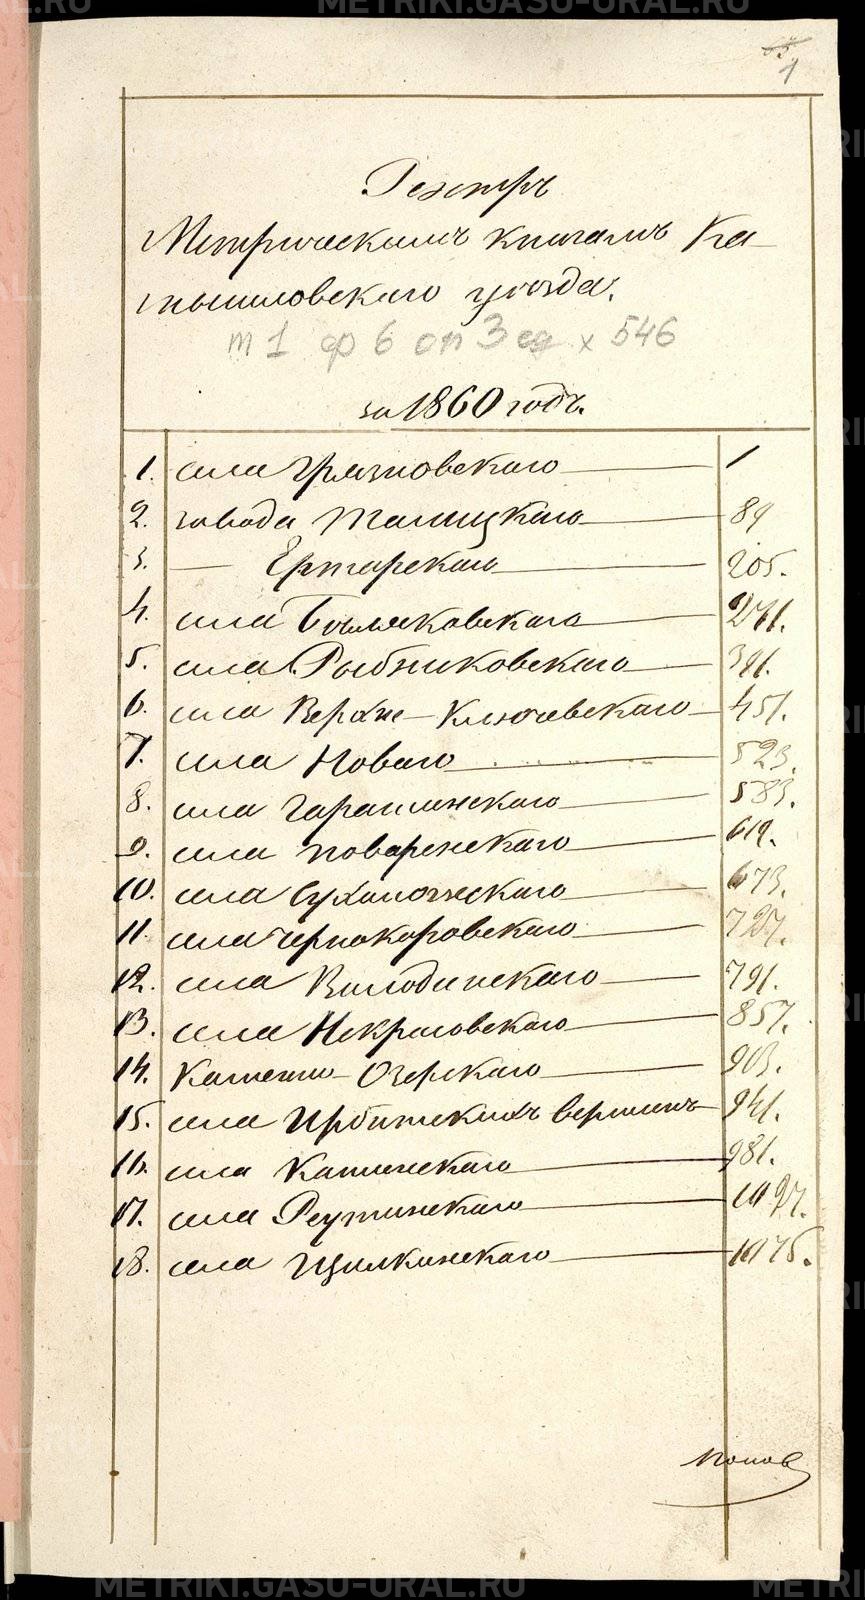 METRIKI.GASU-URAL.RU
1
Реэстръ
Метрическимъ книгамъ Ка-
мышловскаго уѣзда.
т 1 ф 6 оп 3 ед х 546
за 1860 годъ.
1. села Грязновскаго 1
2. завода Талицкаго 89
3. — Ертарскаго 205.
4. села Бѣляковскаго 271.
5. села Рыбниковскаго 391.
6. села Верхне-Ключевскаго 451.
7. села Новаго 523.
8. села Гарашкинскаго 583.
9. села Поваренскаго 619.
10. села Суханогскаго 673.
11. села Чернокоровскаго 727.
12. села Володинскаго 791.
13. села Некрасовскаго 857.
14. Каменно-Озерскаго 903.
15. села Ирбитскихъ вершинъ 941.
16. села Катинскаго 981.
17. села Реутинскаго 1027.
18. села Щилкинскаго 1075.
Попов
METRIKI.GASU-URAL.RU